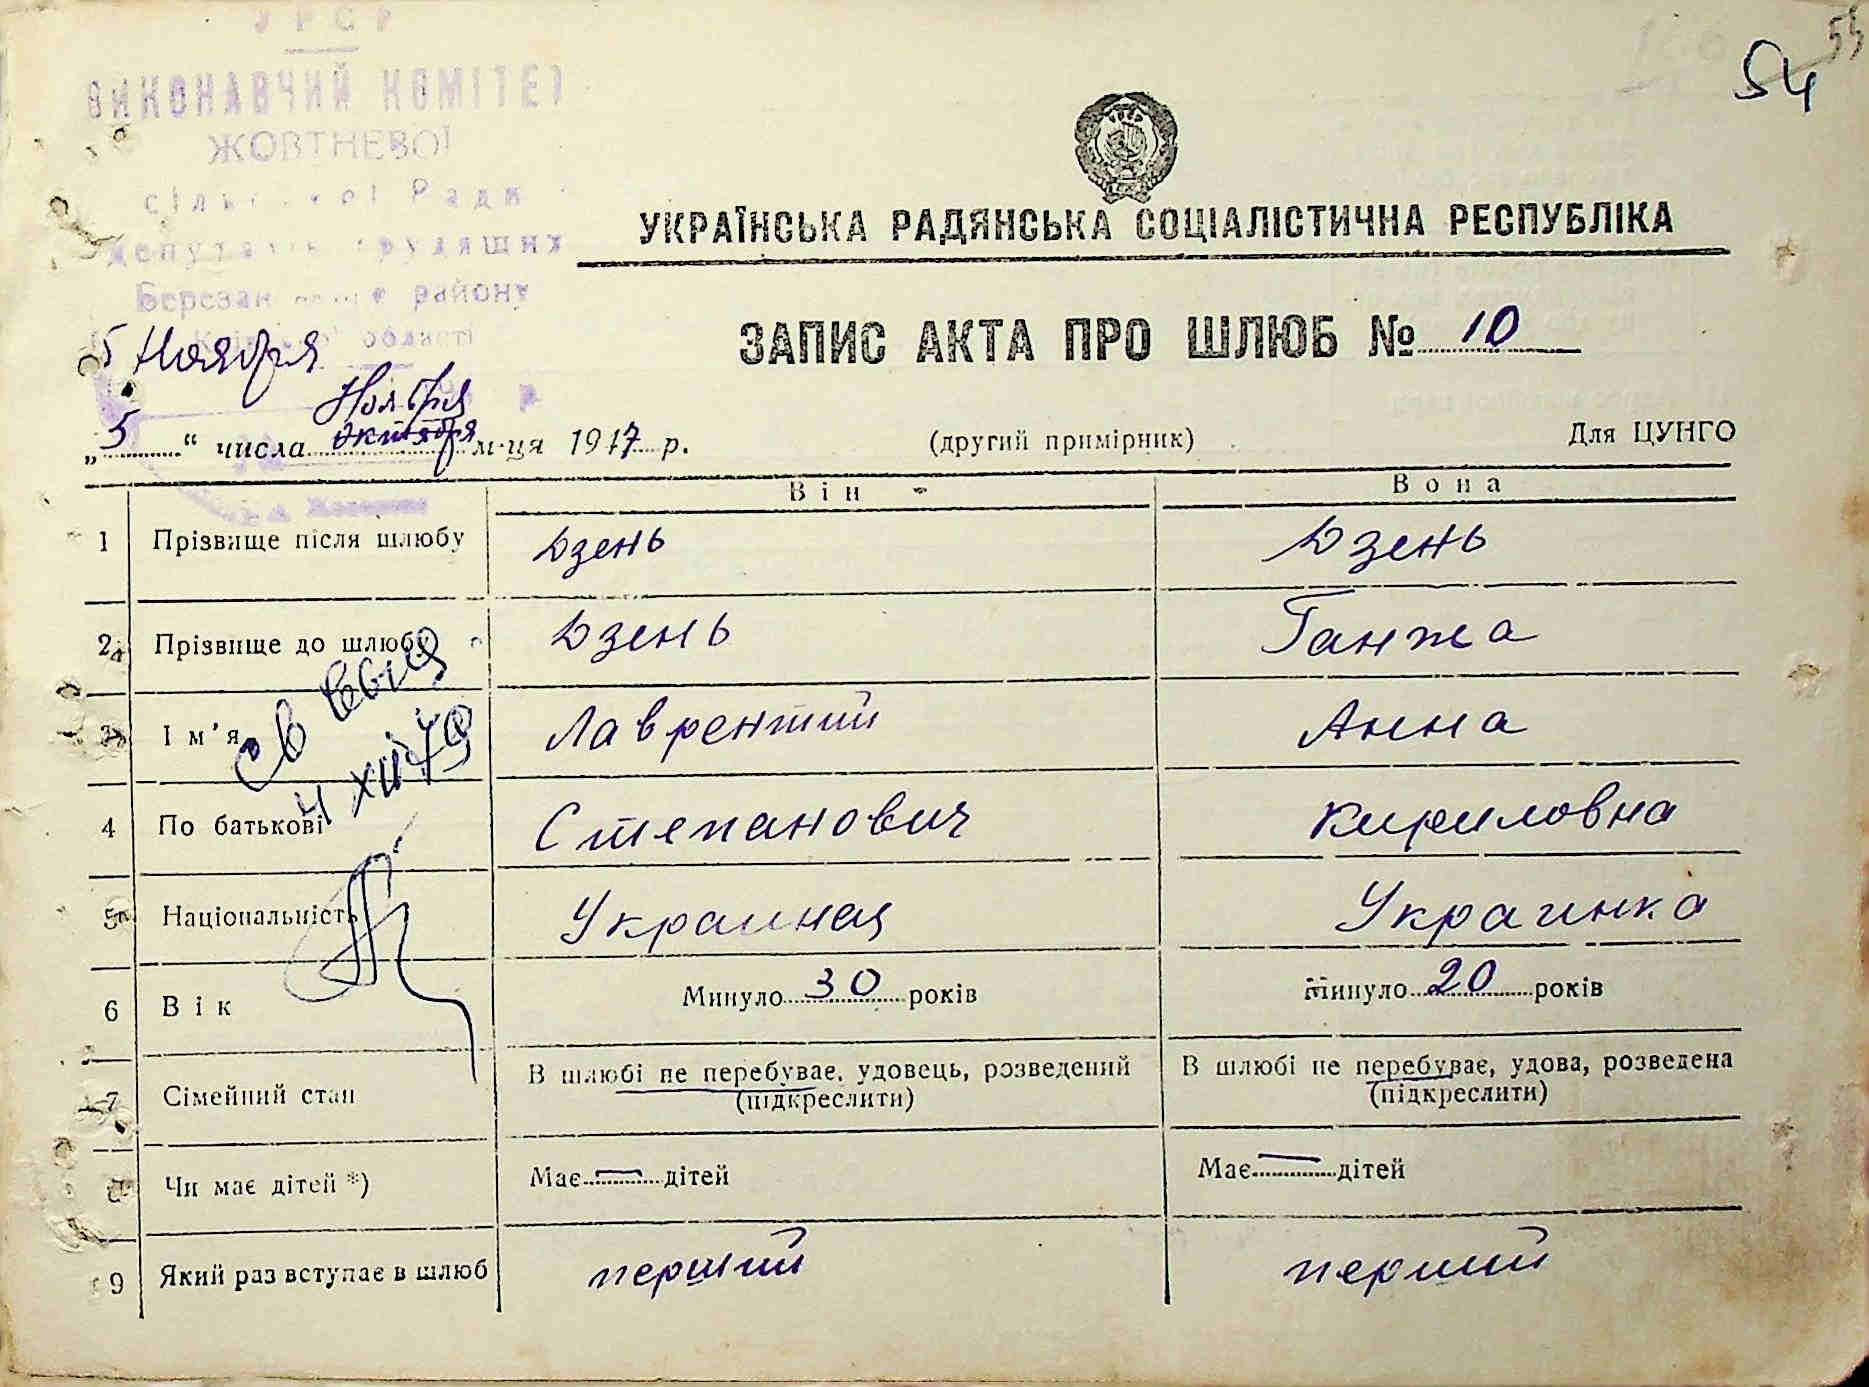 54 55
УРСР
ВИКОНАВЧИЙ КОМІТЕТ
ЖОВТНЕВОЇ
сільської Ради
депутатів трудящих
Березан району
області
УКРАЇНСЬКА РАДЯНСЬКА СОЦІАЛІСТИЧНА РЕСПУБЛІКА
ЗАПИС АКТА ПРО ШЛЮБ № 10
5 Ноября
Ноября
„5“ числа октября м-ця 1947 р. (другий примірник) Для ЦУНГО
Він Вона
1 Прізвище після шлюбу Дзень Дзень
2 Прізвище до шлюбу Дзень Ганжа
3 Ім'я Лаврентий Анна
4 По батькові Степанович Кириловна
5 Національність Украинец Украинка
6 Вік Минуло 30 років Минуло 20 років
7 Сімейний стан В шлюбі не перебуває, удовець, розведений В шлюбі не перебуває, удова, розведена
(підкреслити) (підкреслити)
8 Чи має дітей *) Має — дітей Має — дітей
9 Який раз вступає в шлюб перший перший